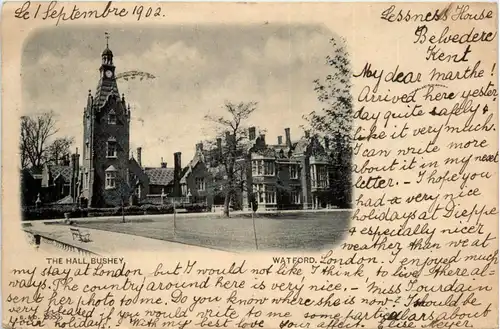 Le 1 Septembre 1902.
Lessness House
Belvedere
Kent
My dear Marthe!
Arrived here yester
day quite safely &
like it very much.
I can write more
about it in my next
letter. I hope you
had a very nice
holidays at Dieppe
& especially nicer
weather than we at
THE HALL, BUSHEY.
WATFORD.
London. I enjoyed much
my stay at London but I would not like I think to live there al-
ways. The country around here is very nice. - Miss Jourdain
sent her photo to me. Do you know where she is now? I would be
very pleased if you would write to me some particulars about
your holiday. With my best love your affect. Else